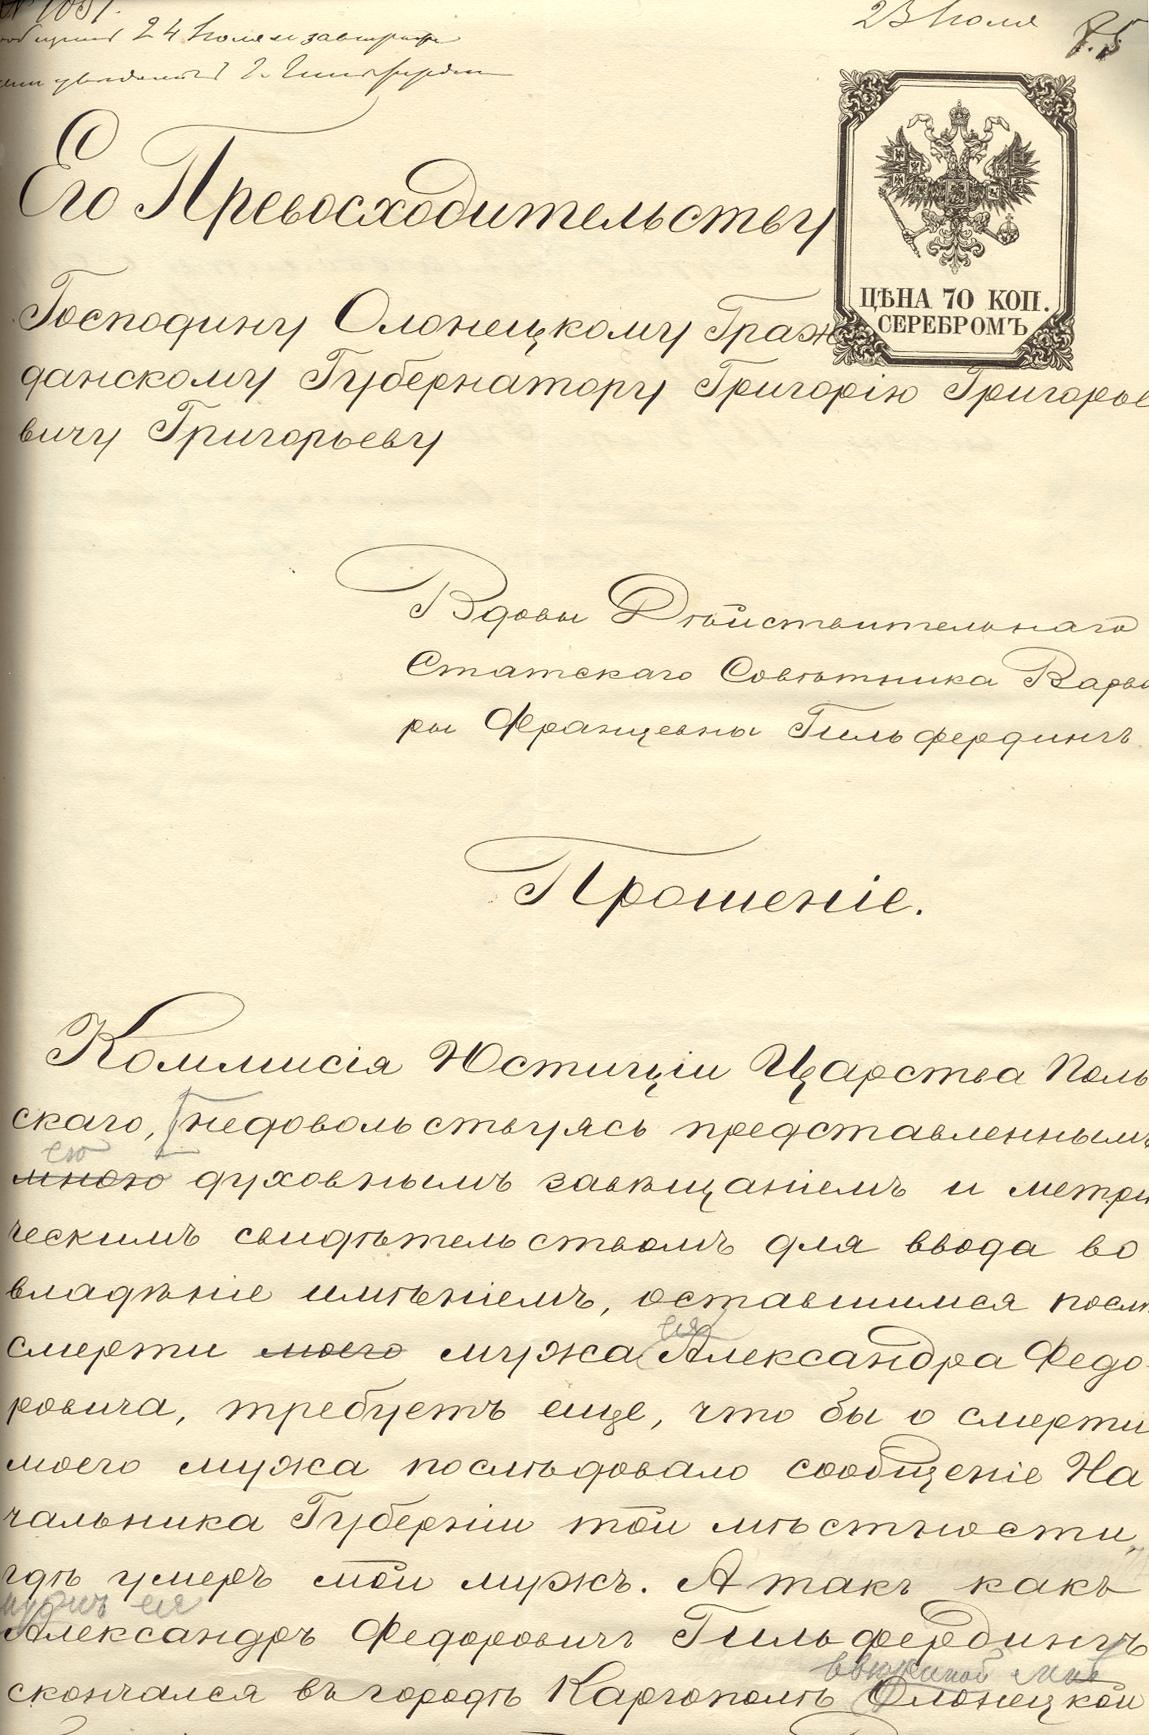 № 1051.
23 Іюля
24 Іюля и
Его Превосходительству
ЦѢНА 70 КОП.
СЕРЕБРОМЪ
Господину Олонецкому Граж
данскому Губернатору Григорію Григорье
вичу Григорьеву
Вдовы Дѣйствительнаго
Статскаго Совѣтника Варва
ры Францевны Гильфердингъ
Прошеніе.
Коммисія Юстиціи Царства Поль
скаго, недовольствуясь представленнымъ
ею
мною духовнымъ завѣщаніемъ и метри
ческимъ свидѣтельствомъ для ввода во
владѣніе имѣніемъ, оставшимся послѣ
ея
смерти моего мужа Александра Федо
ровича, требуетъ еще, что бы о смерти
моего мужа послѣдовало сообщеніе На
чальника Губерніи той мѣстности,
гдѣ умеръ мой мужъ. А такъ какъ
мужъ ея
Александръ Федоровичъ Гильфердингъ
ввѣренной мнѣ
скончался въ городѣ Каргополѣ Олонецкой